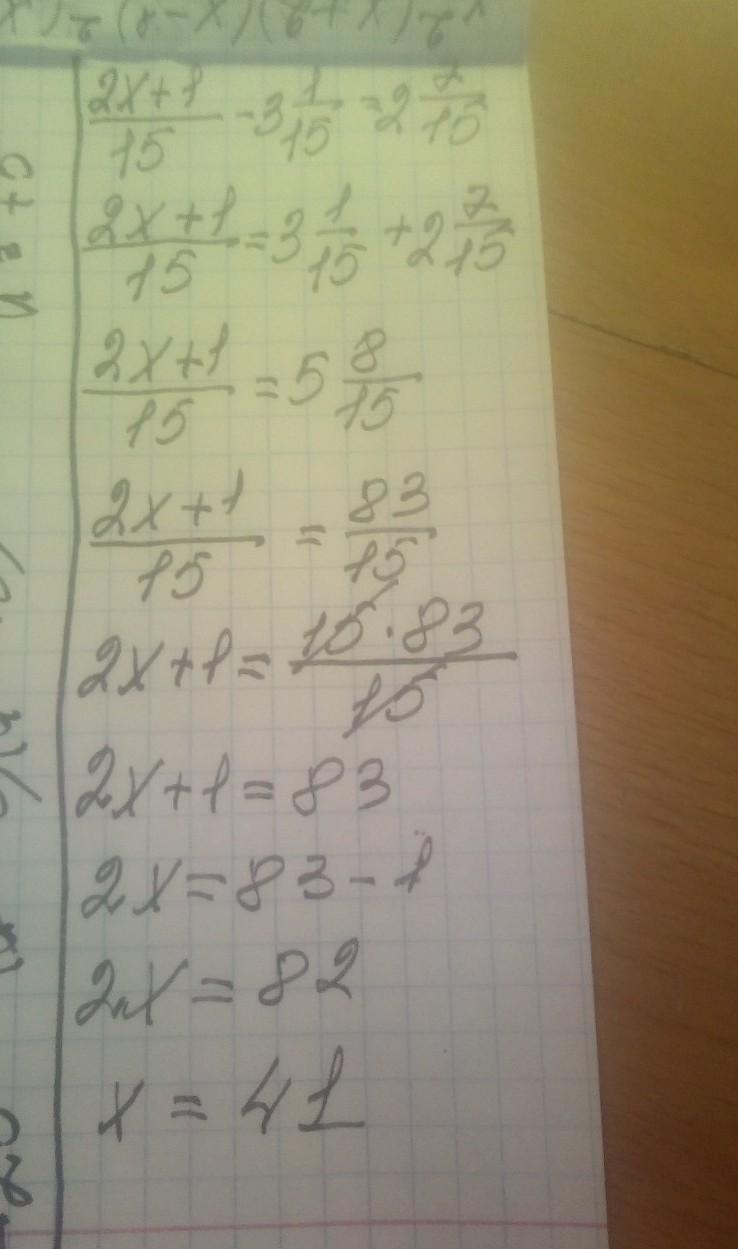 (2x+1)/15 - 3 1/15 = 2 7/15
(2x+1)/15 = 3 1/15 + 2 7/15
(2x+1)/15 = 5 8/15
(2x+1)/15 = 83/15
2x+1 = (15·83)/15
2x+1 = 83
2x = 83 - 1
2x = 82
x = 41